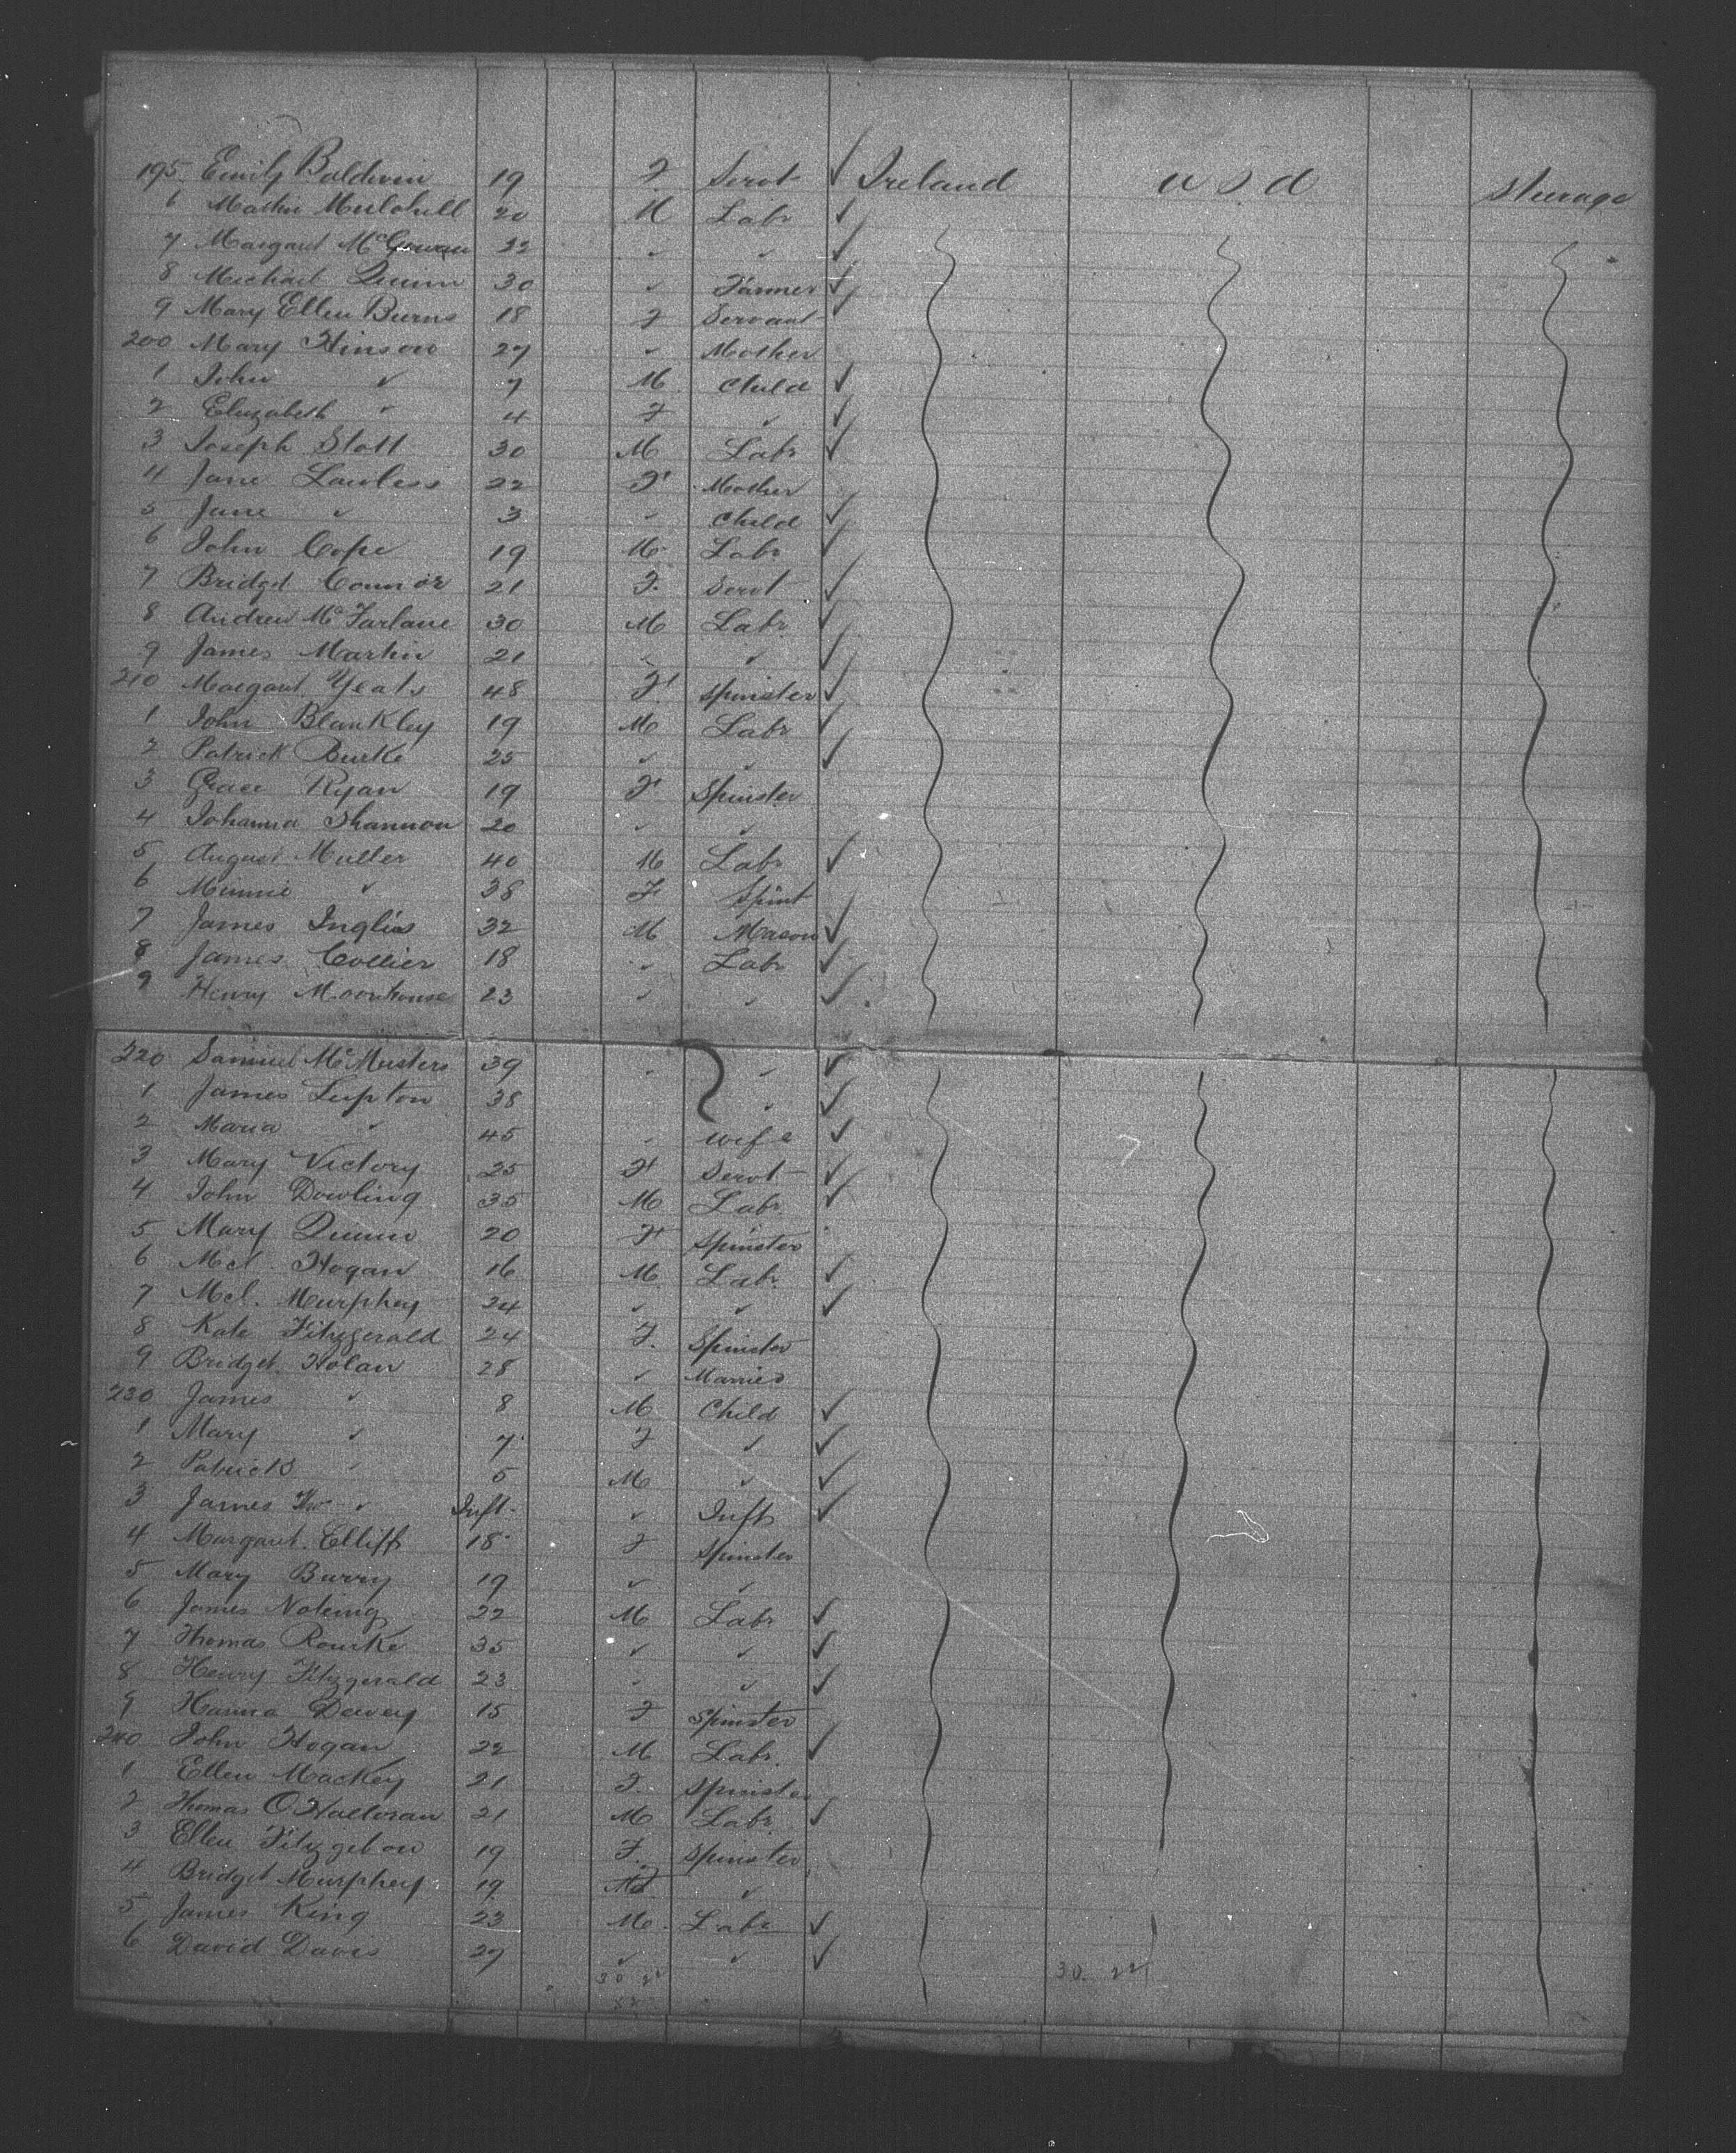 195 Emily Baldwin 19 F Servt ✓ Ireland U S A Steerage
6 Mulchill 20 M Labr ✓
7 Margaret McGowan 22 " " ✓
8 Michael Quinn 30 " Farmer ✓
9 Mary Ellen Burns 18 F Servant
200 Mary Hinson 27 " Mother
1 John " 7 M Child ✓
2 Elizabeth " 4 F " ✓
3 Joseph Stott 30 M Labr ✓
4 Jane Lawless 22 F Mother
5 Jane " 3 " Child ✓
6 John Cope 19 M Labr ✓
7 Bridget Connor 21 F. Servt ✓
8 Andrew McFarlane 30 M Labr ✓
9 James Martin 21 " " ✓
210 Margaret Yeats 48 F. Spinster ✓
1 John Blankley 19 M Labr ✓
2 Patrick Burke 25 " " ✓
3 Grace Ryan 19 F Spinster
4 Johanna Shannon 20 " "
5 August Muller 40 M Labr ✓
6 Minnie " 38 F Spinst
7 James Inglis 32 M Mason ✓
8 James Collier 18 " Labr ✓
9 Henry Moorhouse 23 " " ✓
220 Samuel McMusters 39 " " ✓
1 James Lupton 38 " ✓
2 Maria " 45 " Wife ✓
3 Mary Victory 25 F Servt ✓
4 John Dowling 35 M Labr ✓
5 Mary Quinn 20 F Spinster
6 Mcl. Hogan 16 M Labr ✓
7 Mcl. Murphey 24 " " ✓
8 Kate Fitzgerald 24 F. Spinster
9 Bridget Nolan 28 " Married
230 James " 8 M Child ✓
1 Mary " 7 F " ✓
2 Patrick " 5 M " ✓
3 James " Inft. " Inft ✓
4 Margaret Elliff 18 F Spinster
5 Mary Burry 19 " "
6 James Noting 22 M Labr ✓
7 Thomas Rourke 35 " " ✓
8 Henry Fitzgerald 23 " " ✓
9 Hanna Dewey 15 F Spinster
240 John Hogan 22 M Labr ✓
1 Ellen Mackey 21 F. Spinster
2 Thomas O'Halloran 21 M Labr ✓
3 Ellen Fitzgebon 19 F. Spinster
4 Bridget Murphey 19 F "
5 James King 23 M Labr ✓
6 David Davis 27 " " ✓
30 22 30. 22